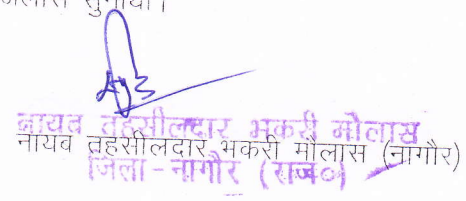 सुनाया।
नायव तहसीलदार भकरी मौलास
नायव तहसीलदार भकरी मौलास (नागौर)
जिला - नागौर (राज०)